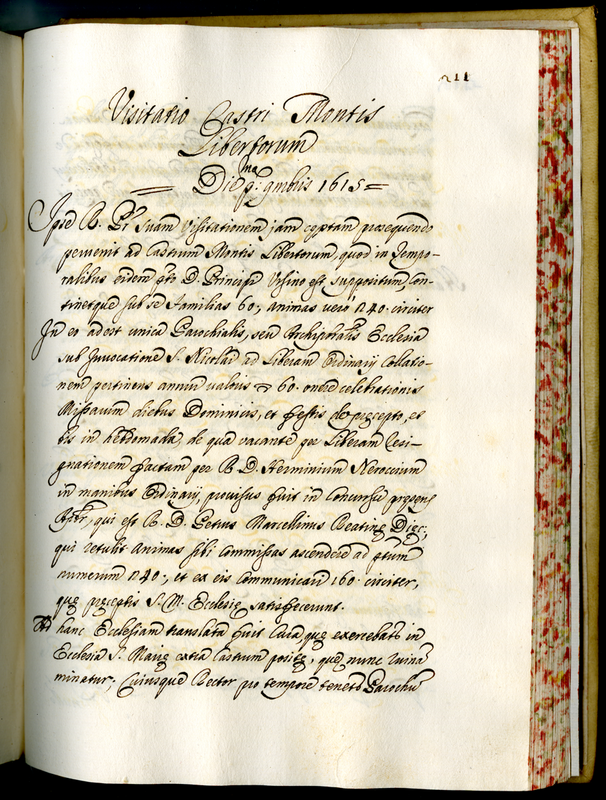 211
Visitatio Castri Montis
Libertorum
Die p.ma 9mbris 1615
Ipse R. P. suam Visitationem jam coeptam prosequendo
pervenit ad Castrum Montis Libertorum, quod in Tempo-
ralibus eidem D. Principi Ursino est suppositum, con-
tinetque sub se familias 60, animas vero 240 circiter
In eo adest unica Parochialis, seu Archipñalis Ecclesia
sub Invocatione S. Nicolai ad Liberam Ordinarij Collatio-
nem pertinens annui valoris 60. onere celebrationis
Missarum diebus Dominicis, et festis de precepto, et
bis in hebdomada, de qua vacante per Liberam resi-
gnationem factam per R. D. Herminium
in manibus Ordinarij, provisus fuit in Concursu presens
qui est R. D. Petrus Marcellinus Reatinę Dięc:,
qui retulit animas sibi commissas ascendere ad
numerum 240, et ex eis Communicari 160. circiter,
quę pręceptis S. M. Ecclesię satisfecerunt.
Ad hanc Ecclesiam translata fuit Cura, quę exercebatr in
Ecclesia S. Marię extra Castrum positę, quę nunc ruinā
minatur; Cuiusque Rector pro tempore tenetr